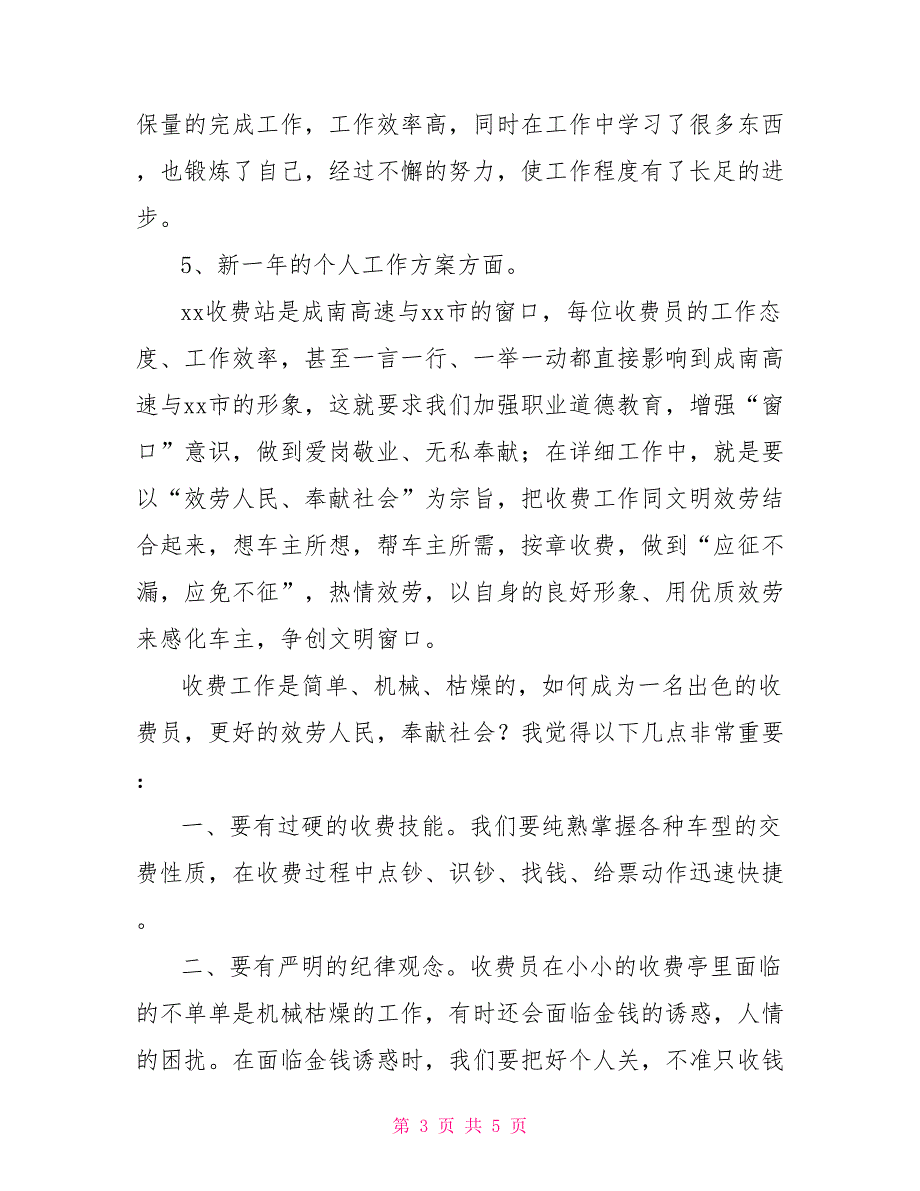 保量的完成工作，工作效率高，同时在工作中学习了很多东西
，也锻炼了自己，经过不懈的努力，使工作程度有了长足的进
步。
5、新一年的个人工作方案方面。
xx收费站是成南高速与xx市的窗口，每位收费员的工作态
度、工作效率，甚至一言一行、一举一动都直接影响到成南高
速与xx市的形象，这就要求我们加强职业道德教育，增强“窗
口”意识，做到爱岗敬业、无私奉献；在详细工作中，就是要
以“效劳人民、奉献社会”为宗旨，把收费工作同文明效劳结
合起来，想车主所想，帮车主所需，按章收费，做到“应征不
漏，应免不征”，热情效劳，以自身的良好形象、用优质效劳
来感化车主，争创文明窗口。
收费工作是简单、机械、枯燥的，如何成为一名出色的收
费员，更好的效劳人民，奉献社会？我觉得以下几点非常重要
：
一、要有过硬的收费技能。我们要纯熟掌握各种车型的交
费性质，在收费过程中点钞、识钞、找钱、给票动作迅速快捷
。
二、要有严明的纪律观念。收费员在小小的收费亭里面临
的不单单是机械枯燥的工作，有时还会面临金钱的诱惑，人情
的困扰。在面临金钱诱惑时，我们要把好个人关，不准只收钱
第 3 页 共 5 页